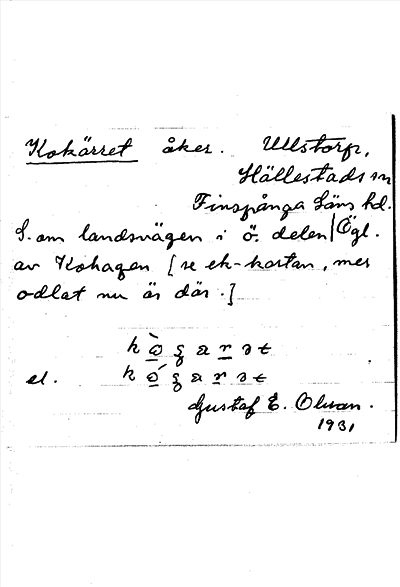 Kokärret åker. Ullstorp,
Hällestads sn
Finspånga läns hd.
S. om landsvägen i ö. delen Ögl.
av Kohagen [se ek-kartan, mer
odlat nu än där.]
el.
Gustaf E. Olsson.
1931